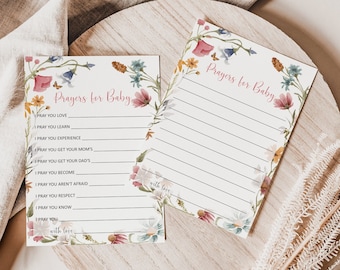 Prayers for Baby
I PRAY YOU LOVE
I PRAY YOU LEARN
I PRAY YOU EXPERIENCE
I PRAY YOU GET YOUR MOM'S
I PRAY YOU GET YOUR DAD'S
I PRAY YOU BECOME
I PRAY YOU AREN'T AFRAID
I PRAY YOU RESPECT
I PRAY YOU KNOW
I PRAY YOU
with love
Prayers for Baby
with